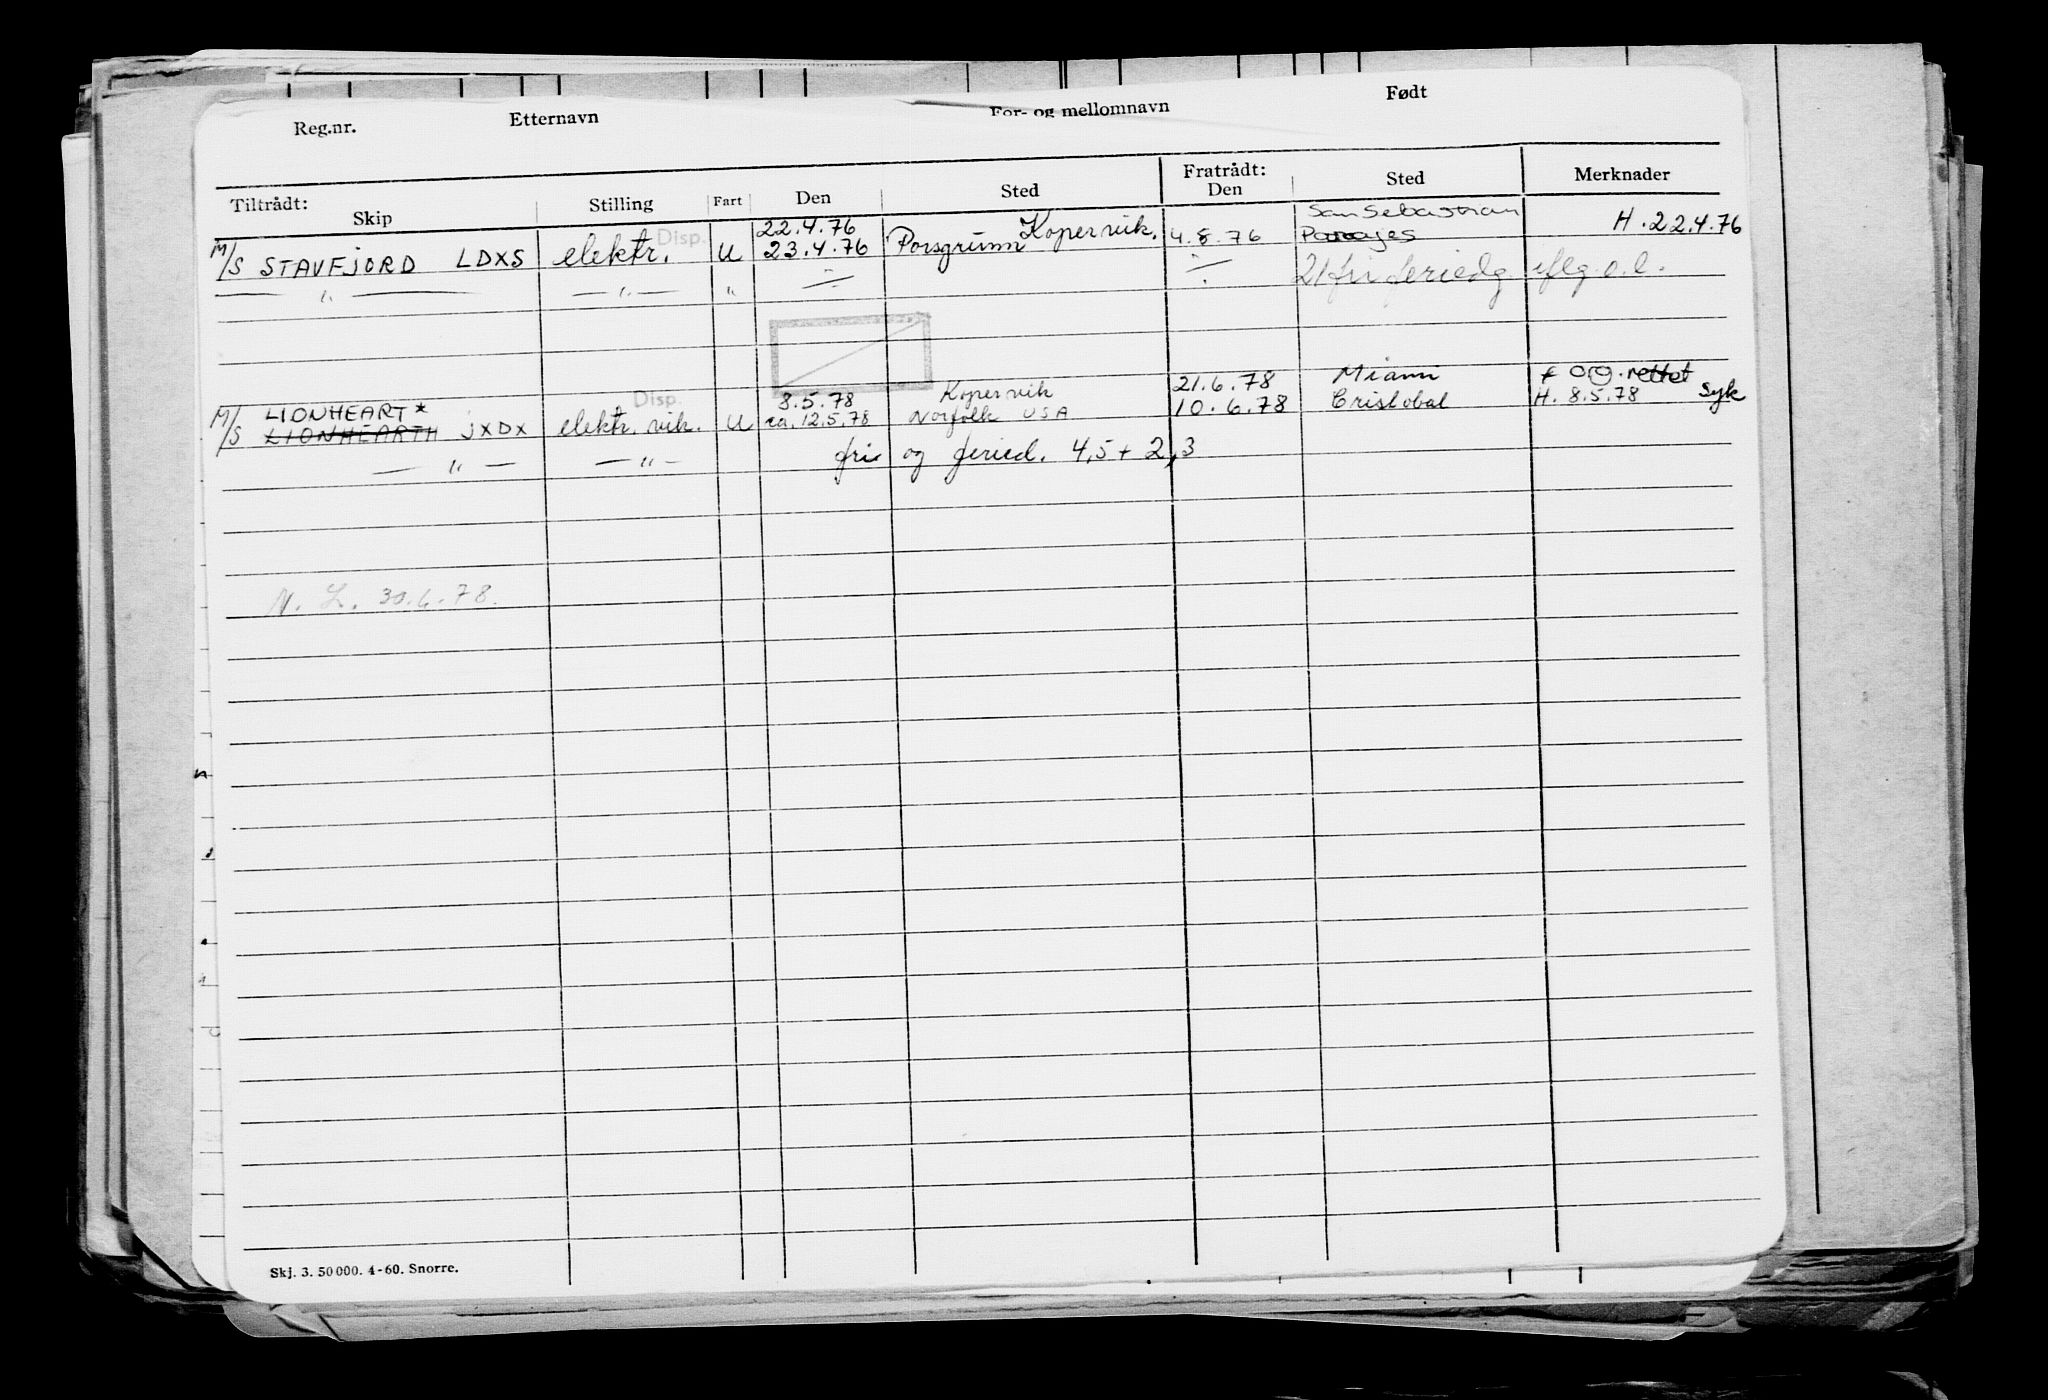 Reg.nr. Etternavn For- og mellomnavn Født
Tiltrådt: Skip Stilling Fart Den Sted Fratrådt: Den Sted Merknader
22.4.76 Kopervik. San Sebastian H. 22.4.76
M/S STAVFJORD LDXS elektr. Disp. U 23.4.76 Porsgrunn 4.8.76
— " — — " — " 21 fri feriedg iflg. o.l.
8.5.78 Kopervik 21.6.78 Miami rettet
M/S LIONHEART* Disp. 10.6.78 Cristobal H. 8.5.78 Syk
LIONHEARTH JXDX elektr. vik. U ca. 12.5.78 Norfolk USA
— " — — " — fri og feried. 4,5 + 2,3
N. L. 30.6.78.
Skj. 3. 50 000. 4-60. Snorre.